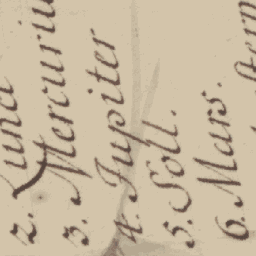 2. Luna
3. Mercuriu
4. Jupiter
5. Soll.
6. Mars.